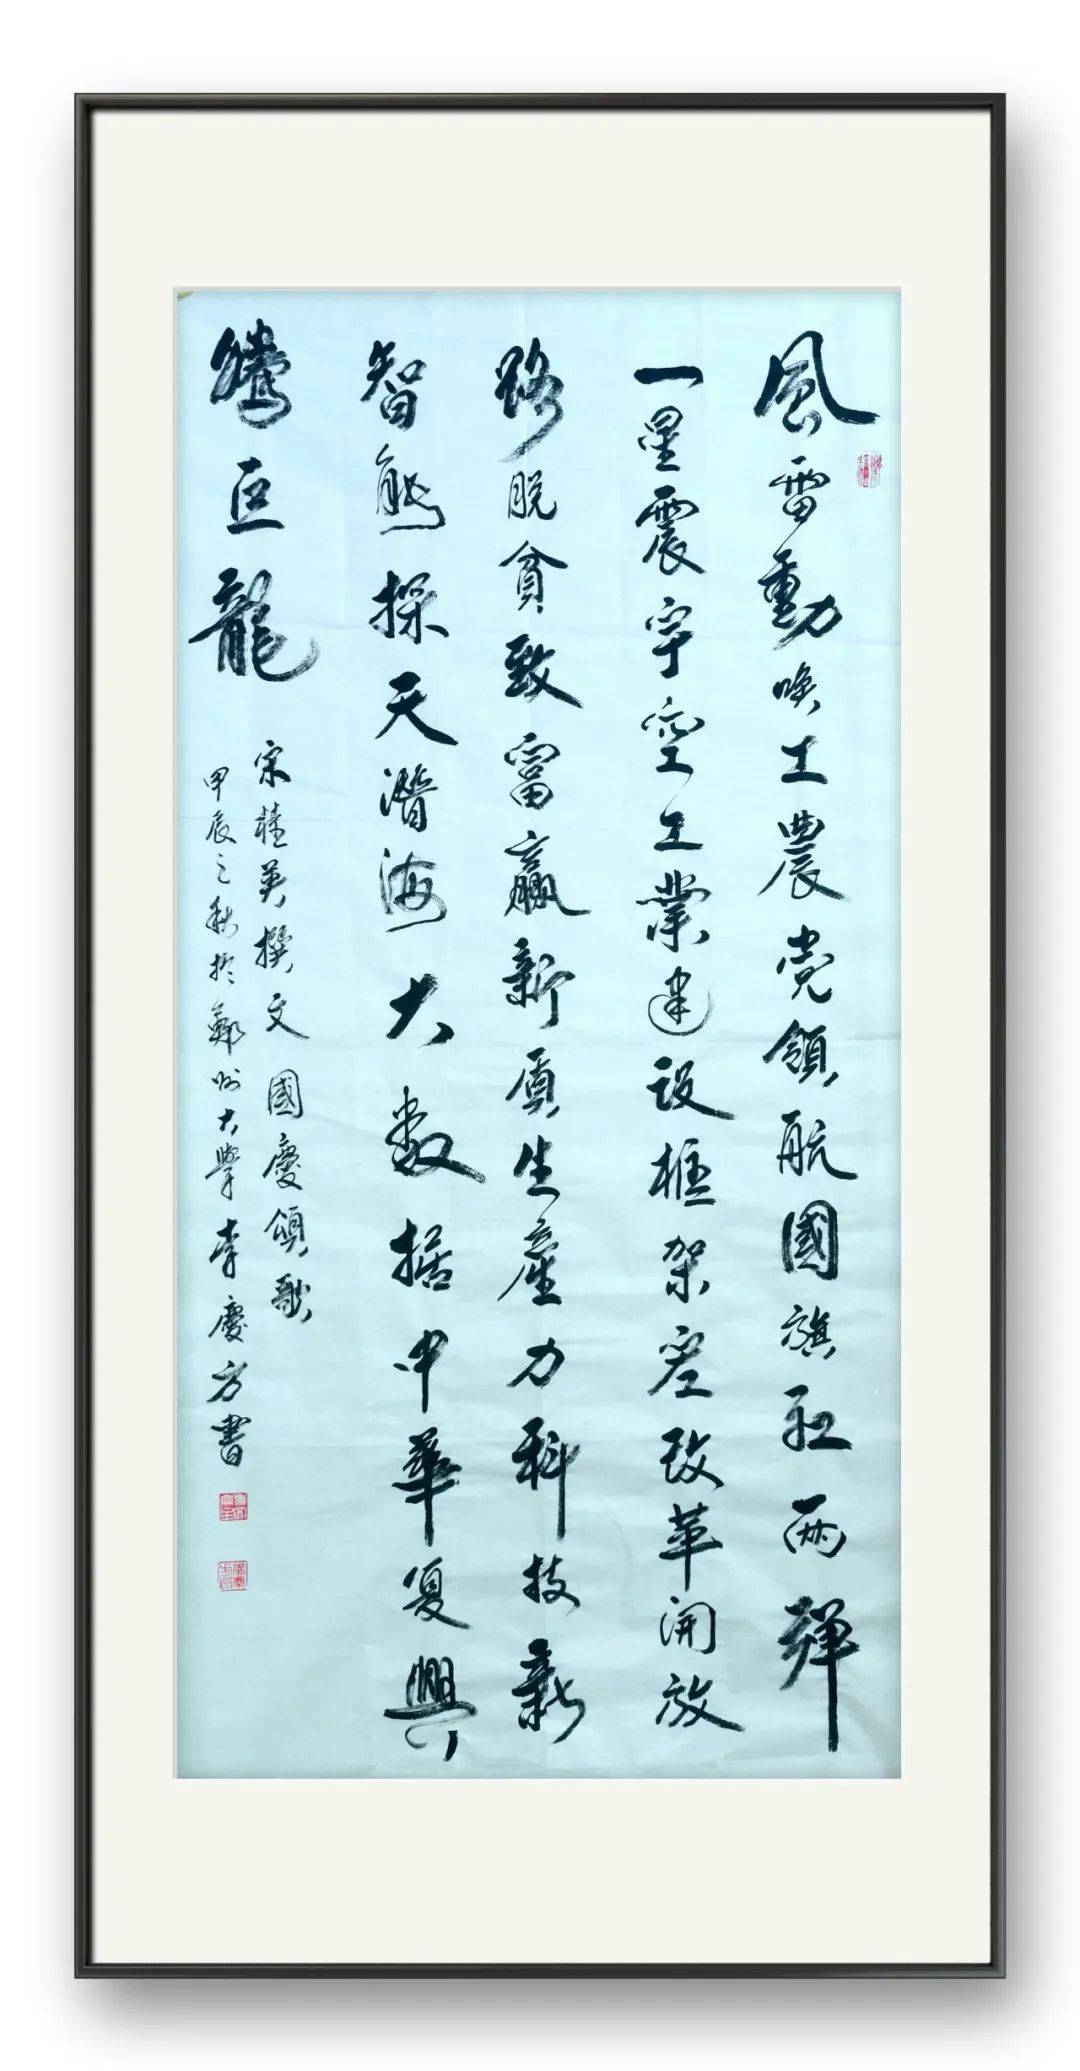 風雷動喚工農党領航國旗紅兩弹
一星震宇空工業建设框架空改革開放
路脱貧致富贏新质生產力科技新
智能探天潛海大数据中華复興
騰巨龍
宋桂英撰文國慶頌歌
甲辰之秋於鄭州大學李慶方書